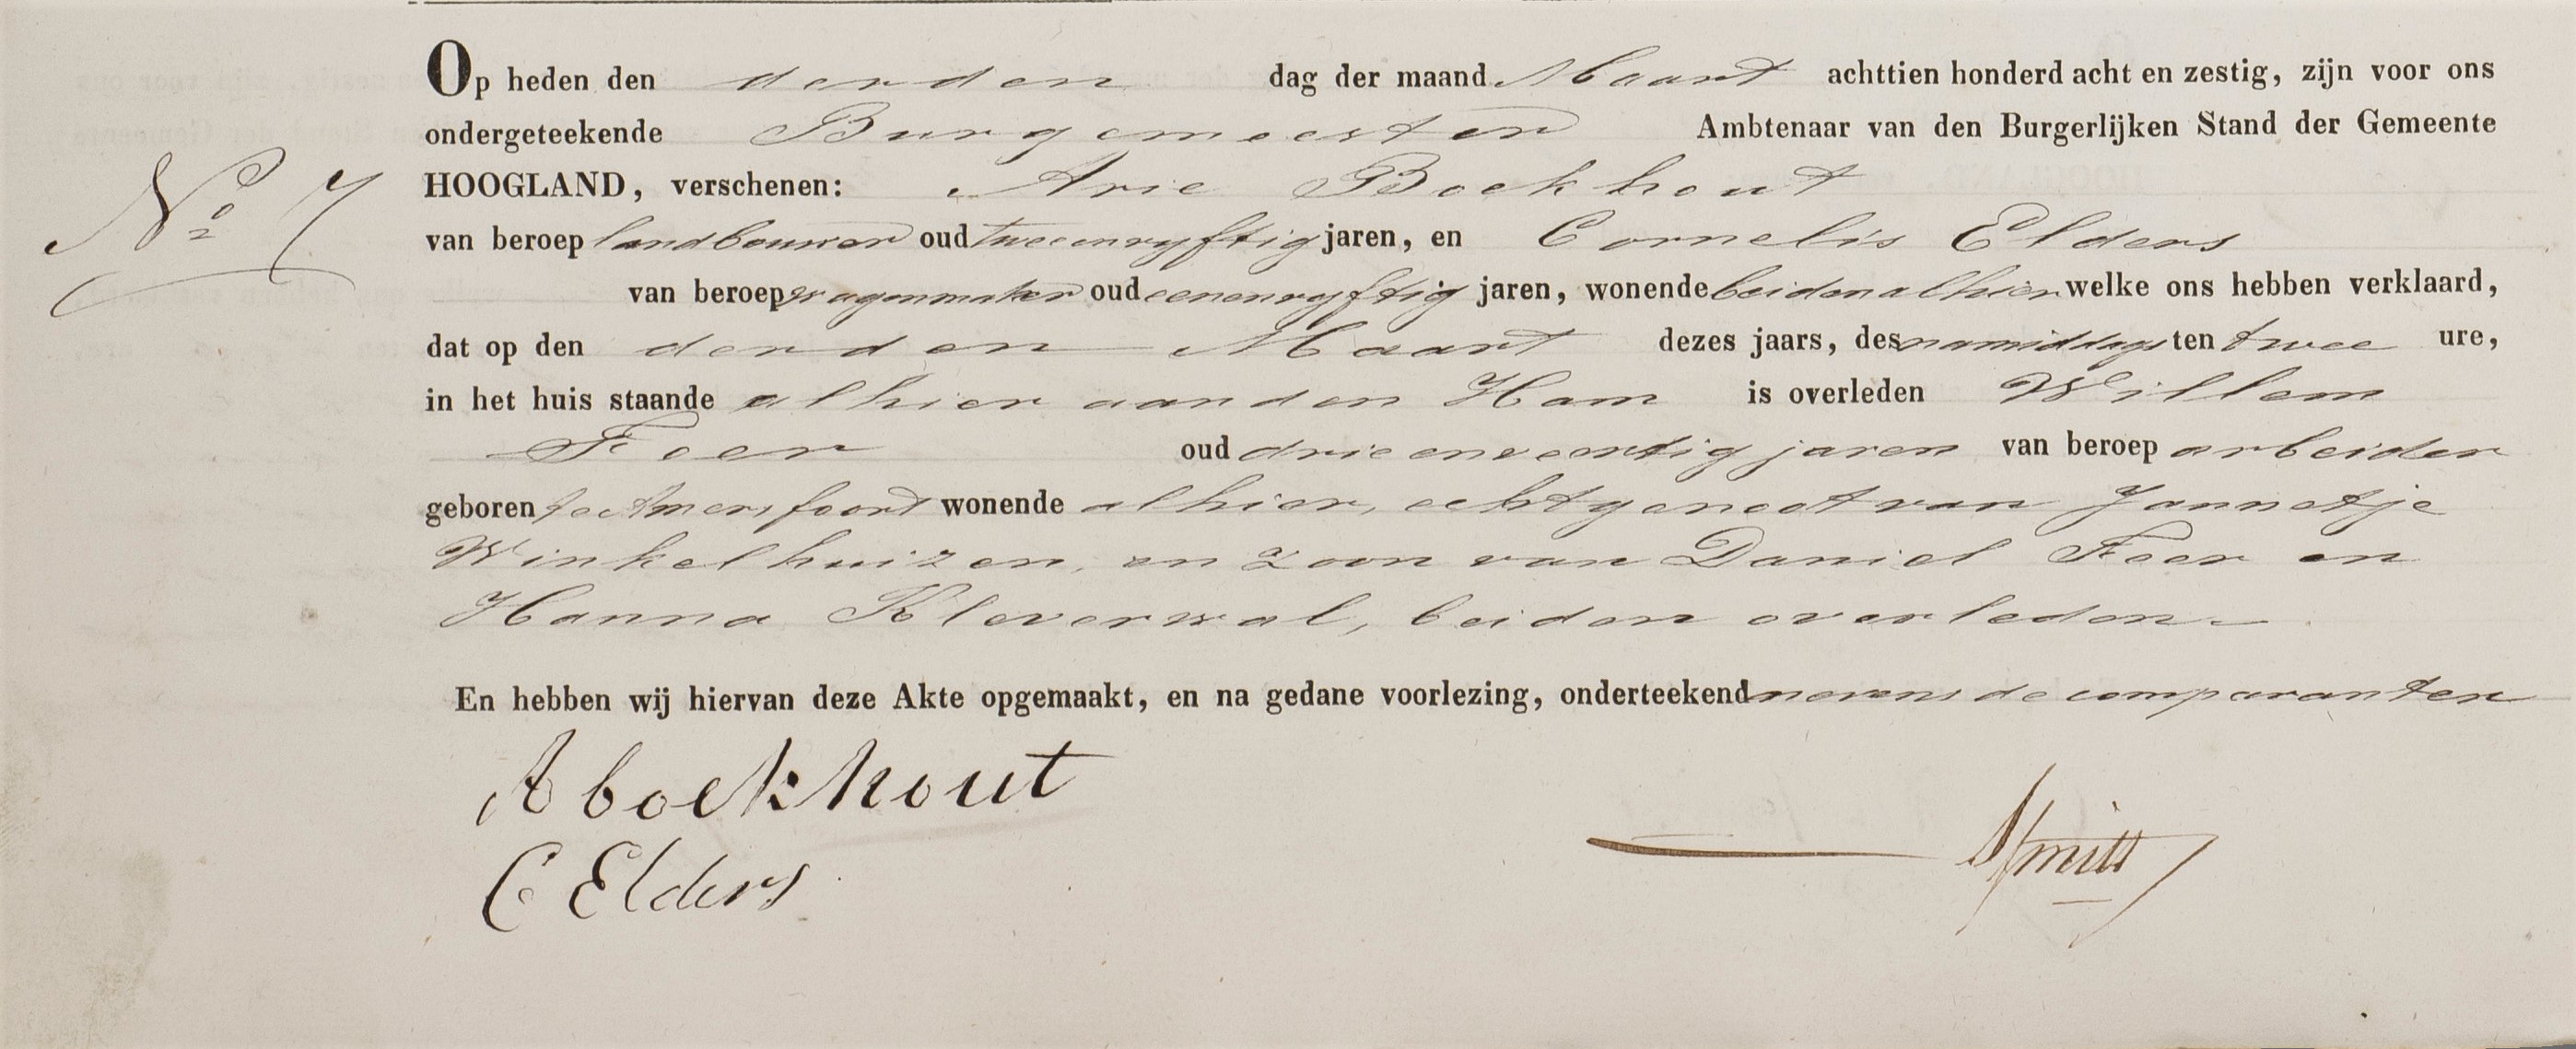 Op heden den derden dag der maand Maart achttien honderd acht en zestig, zijn voor ons
ondergeteekende Burgemeester Ambtenaar van den Burgerlijken Stand der Gemeente
No 7 HOOGLAND, verschenen: Arie Boekhout
van beroep landbouwer oud tweeenvyftig jaren, en Cornelis Elders
van beroep wagenmaker oud eenenvyftig jaren, wonende beiden alhier welke ons hebben verklaard,
dat op den derden Maart dezes jaars, des namiddags ten twee ure,
in het huis staande alhier aan den Ham is overleden Willem
Feer oud drieenveertig jaren van beroep arbeider
geboren te Amersfoort wonende alhier, echtgenoot van Jannetje
Winkelhuizen, en zoon van Daniel Feer en
Hanna Kleverwal, beiden overleden.
En hebben wij hiervan deze Akte opgemaakt, en na gedane voorlezing, onderteekend nevens de comparanten
A boekhout
C Elders
Smitt